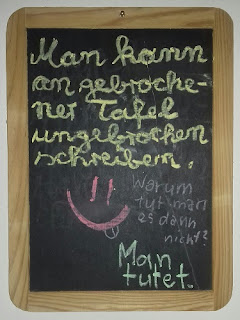 Man kann
an gebroche-
ner Tafel
ungebrochen
schreiben.
Warum
tut man
es dann
nicht?
Man
tutet.